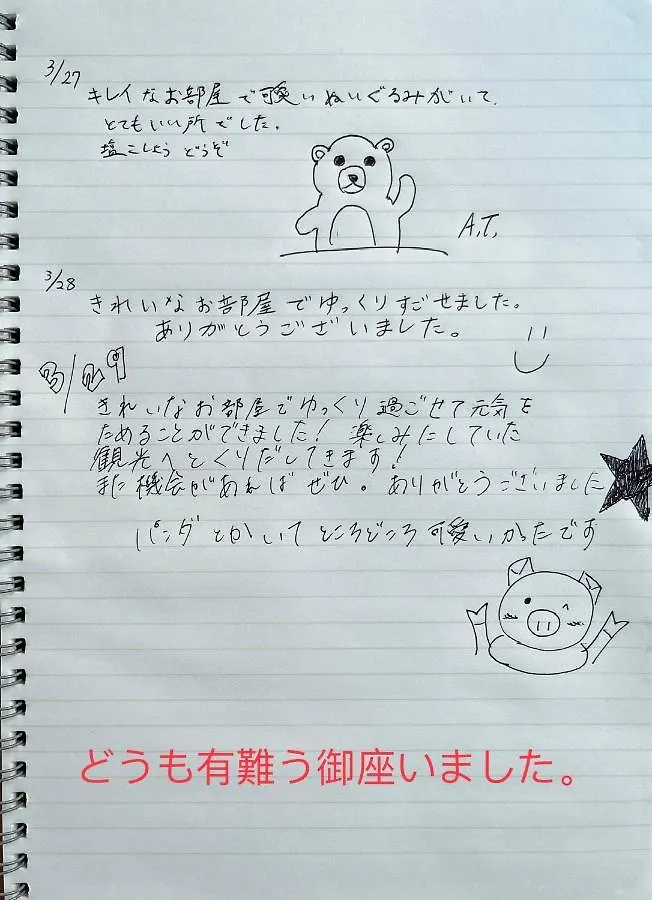 3/27
キレイなお部屋で可愛いぬいぐるみがいて、
とてもいい所でした。
塩こしょう どうぞ
A.T,
3/28
きれいなお部屋でゆっくりすごせました。
ありがとうございました。
3/29
きれいなお部屋でゆっくり過ごせて元気を
ためることができました! 楽しみにしていた
観光へとくりだしてきます!
また機会があればぜひ。ありがとうございました
パンダとかいてところどころ可愛いかったです
どうも有難う御座いました。